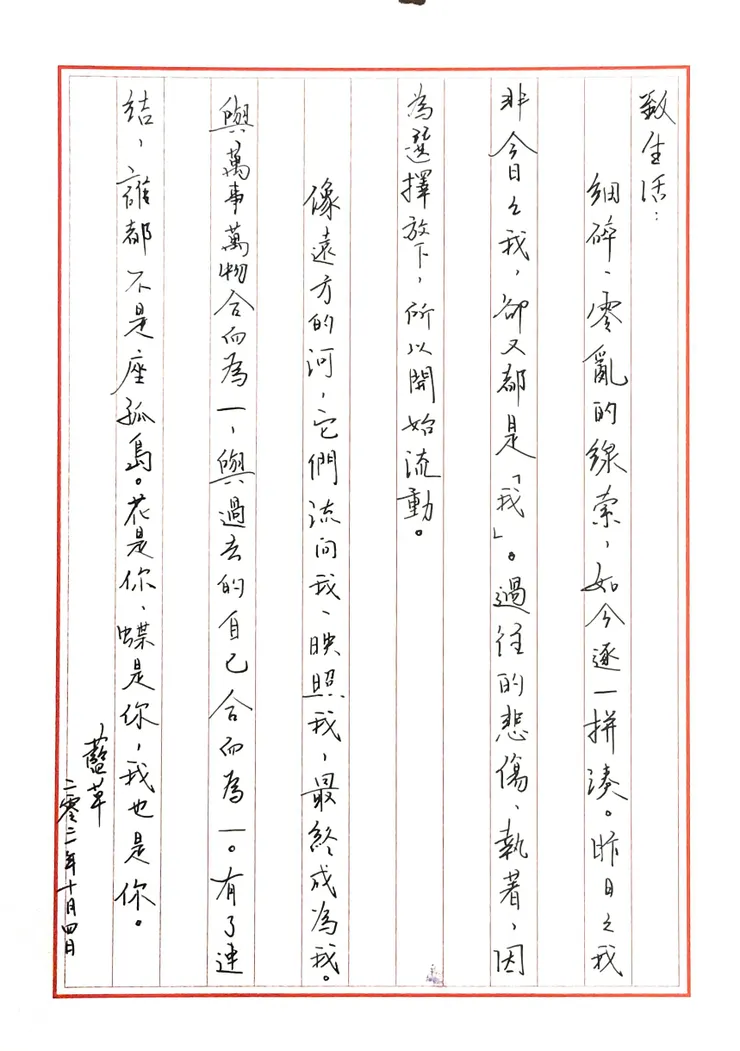 致生活：
細碎、零亂的線索，如今逐一拼湊。昨日之我
非今日之我，卻又都是「我」。過往的悲傷、執著，因
為選擇放下，所以開始流動。
像遠方的河，它們流向我、映照我，最終成為我。
與萬事萬物合而為一，與過去的自己合而為一。有了連
結，誰都不是座孤島。花是你、蝶是你，我也是你。
藍草
二零二二年十月四日